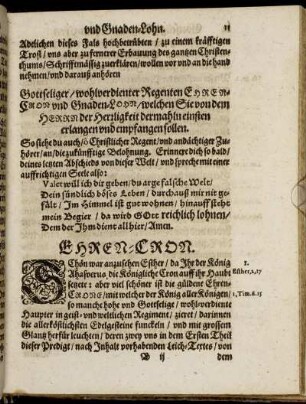 und Gnaden-Lohn. 11
Adelichen dieses Fals hochbetrübten / zu einem kräfftigen
Trost / uns aber zu fernerer Erbauung des gantzen Christen-
thums / Schrifftmässig zuerklären / wollen vor und an die hand
nehmen / und darauß anhören
Gottseliger / wohlverdienter Regenten EHREN-
CRON und Gnaden-LOHN / welchen Sie von dem
HERRN der Herrligkeit dermahln einsten
erlangen und empfangen sollen.
So siehe du auch / ô Christlicher Regent / und andächtiger Zu-
hörer / an / die zukünfftige Belohnung. Erinnere dich so bald /
deines letzten Abschieds von dieser Welt / und sprech mit einer
auffrichtigen Seele also:
Valet will ich dir geben / du arge falsche Welt /
Dein sündlich böses Leben / durchauß mir nit ge-
fält / Im Himmel ist gut wohnen / hinauff steht
mein Begier / da wird GOtt reichlich lohnen /
Dem der Ihm dient allhier / Amen.
EHREN-CRON.
SChön war anzusehen Esther / da Ihr der König 1.
Ahasverus, die Königliche Cron auff ihr Haubt Esther, 2, 17
setzete: aber viel schöner ist die güldene Ehren-
CRONE / mit welcher der König aller Königen 1, Tim. 6. 15
so manche hohe und Gottselige / wohlverdiente
Häupter in geist- und weltlichen Regiment / zieret / darinnen
die allerköstlichsten Edelgesteine funckeln / und mit grossem
Glantz herfür leuchten / deren zwey uns in dem Ersten Theil
dieser Predigt / nach Inhalt vorhabenden Leich-Textes / von
B ij dem